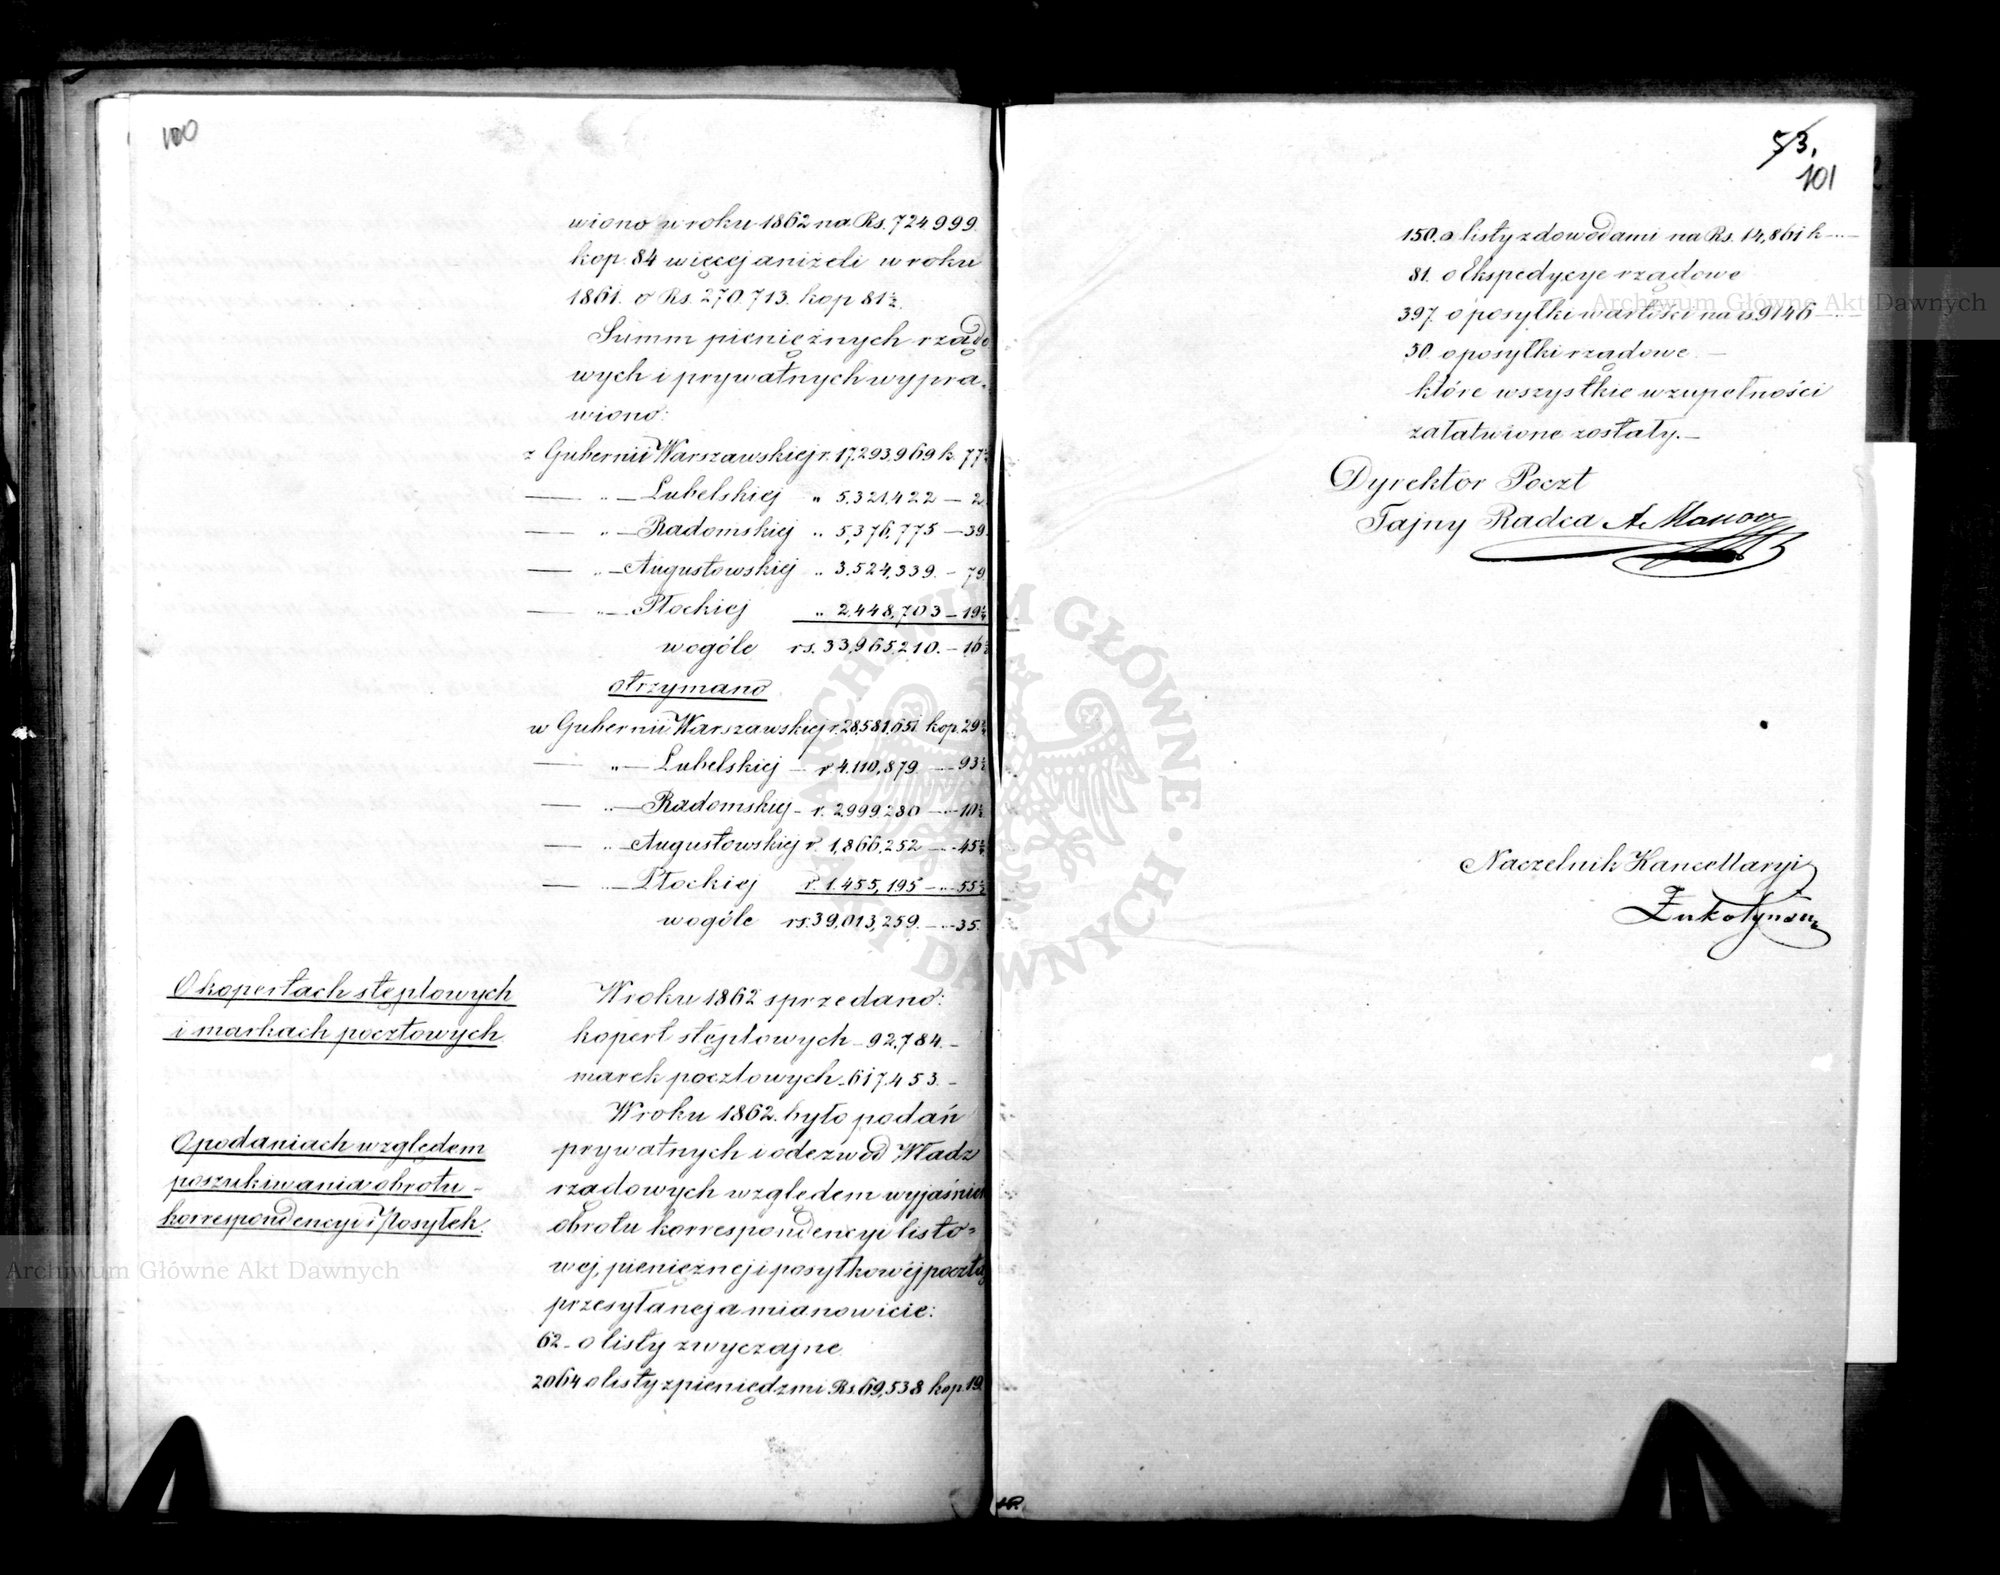 100
wiono w roku 1862 na Rs. 724.999.
kop. 84 więcej aniżeli w roku
1861. o Rs. 270.713. kop 81½.
Summ pieniężnych rządo
wych i prywatnych wypra-
wiono:
z Gubernii Warszawskiej r. 17.293,969 k. 77½
— „ — Lubelskiej „ 5.321,422 — 2
— „ — Radomskiej „ 5,376,775 — 39.
— „ — Augustowskiej „ 3.524,339. — 79.
— „ — Płockiej „ 2.448,703 — 19¼
wogóle rs. 33,965,210. — 16
otrzymano
w Gubernii Warszawskiej r. 28,581,651 kop. 29¼
— „ — Lubelskiej — r. 4.110,879. — „ — 93½
— „ — Radomskiej — r. 2,999,280 — „ — 10½
— „ — Augustowskiej r. 1,866,252 — „ — 45¼
— „ — Płockiej r. 1.455,195 — „ — 55½
wogóle rs. 39,013,259. — „ — 35.
O kopertach stęplowych
i markach pocztowych
W roku 1862 sprzedano:
kopert stęplowych — 92,784. —
marek pocztowych — 617.453. —
O podaniach względem
poszukiwania obrotu
korrespondencyi i Posyłek.
W roku 1862. było podań
prywatnych i odezw od Władz
rządowych względem wyjaśnień
obrotu korrespondencyi listo=
wej, pieniężnej i posyłkowéj pocztą
przesyłanej a mianowicie:
62 — o listy zwyczajne.
2064 o listy z pieniędzmi Rs. 69,538 kop. 19.
53.
101
150. o listy z dowodami na Rs. 14,861 k — „ —
81. o Ekspedycye rządowe
397. o posyłki wartości na rs 9146 — „ —
30. o posyłki rządowe. —
które wszystkie w zupełności
załatwione zostały. —
Dyrektor Poczt
Tajny Radca
Naczelnik Kancellaryi
Archiwum Główne Akt Dawnych
Archiwum Główne Akt Dawnych
ARCHIWUM GŁÓWNE AKT DAWNYCH